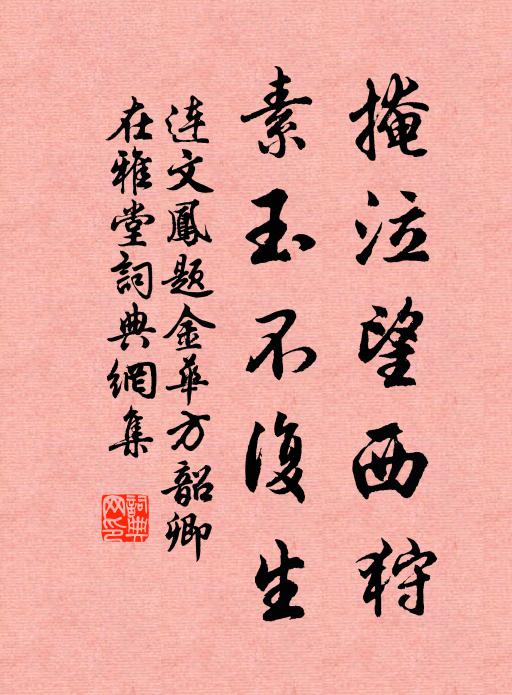 掩泣望西狩
素玉不復生
连文鳳题金華方韶卿
在雅堂詞典網集
詞典
网印